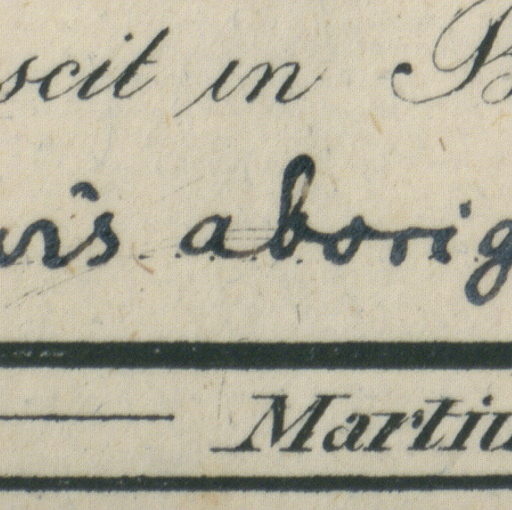 scit in B
is aborig
Martiu